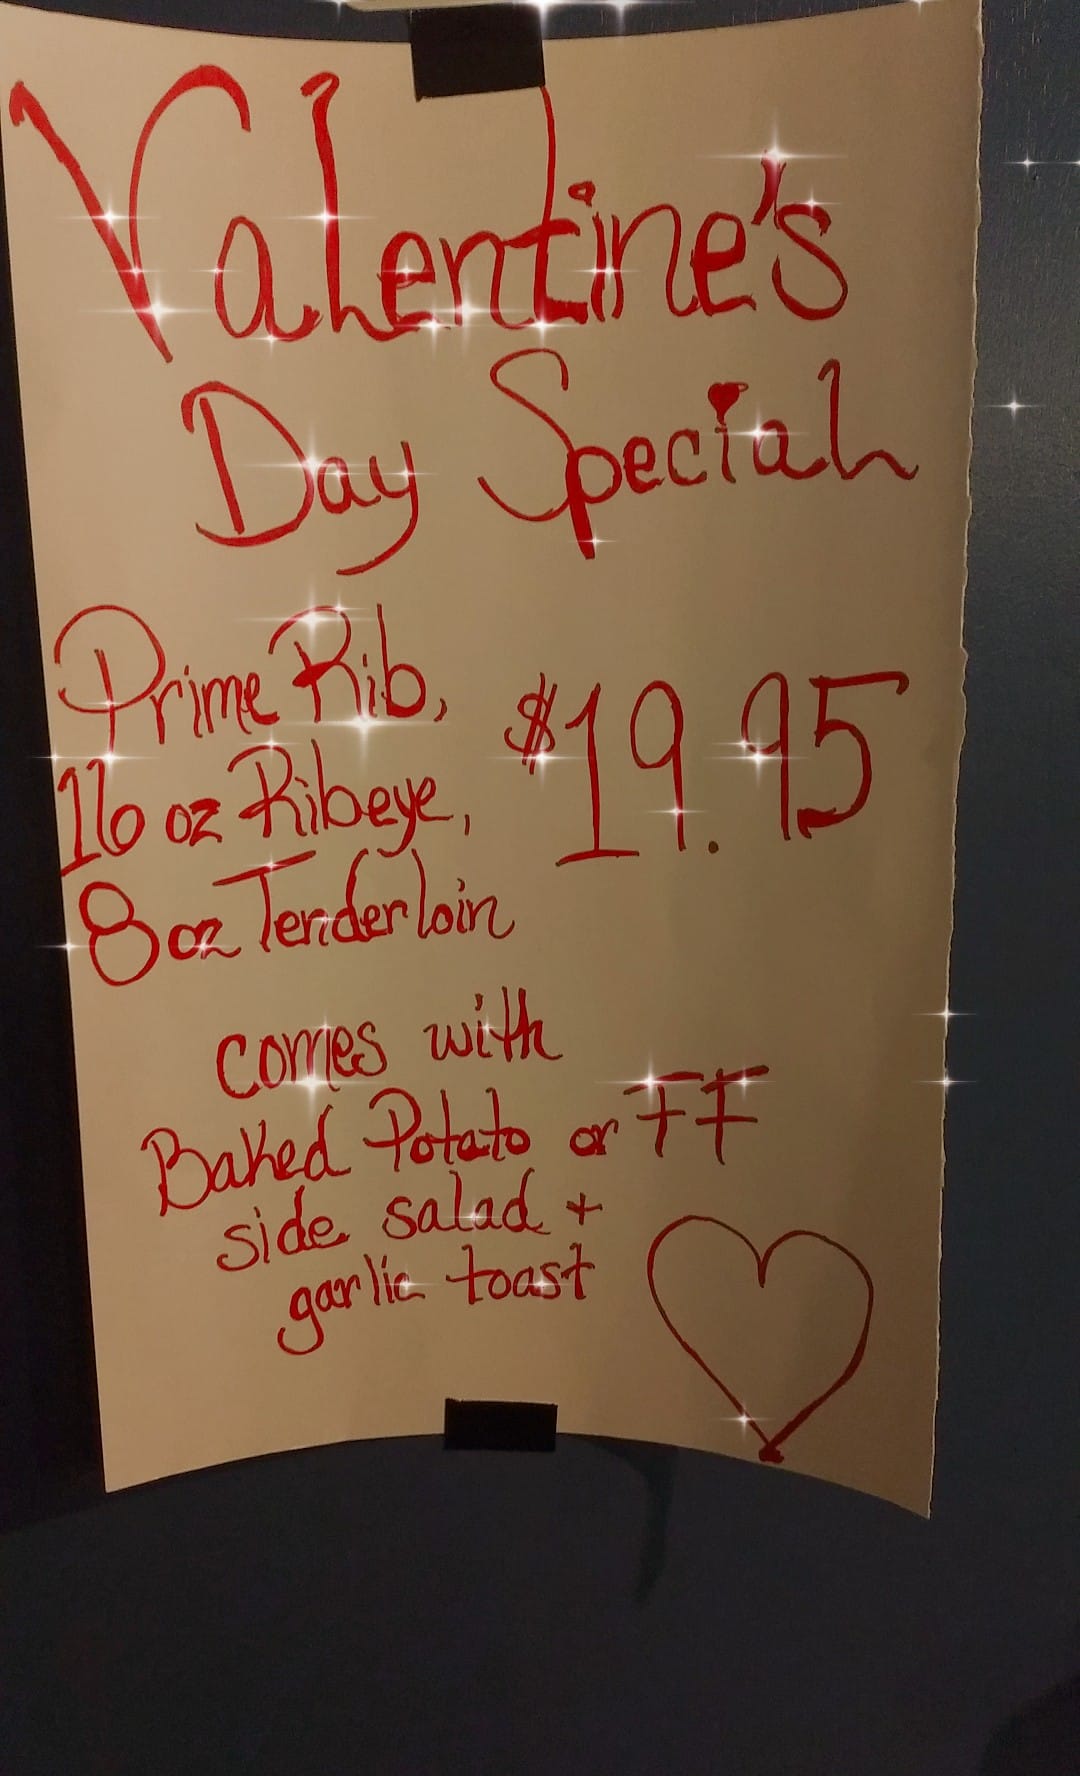 Valentine's
Day Special
Prime Rib,
16 oz Ribeye,
8 oz Tenderloin
$19.95
comes with
Baked Potato or FF
side salad +
garlic toast